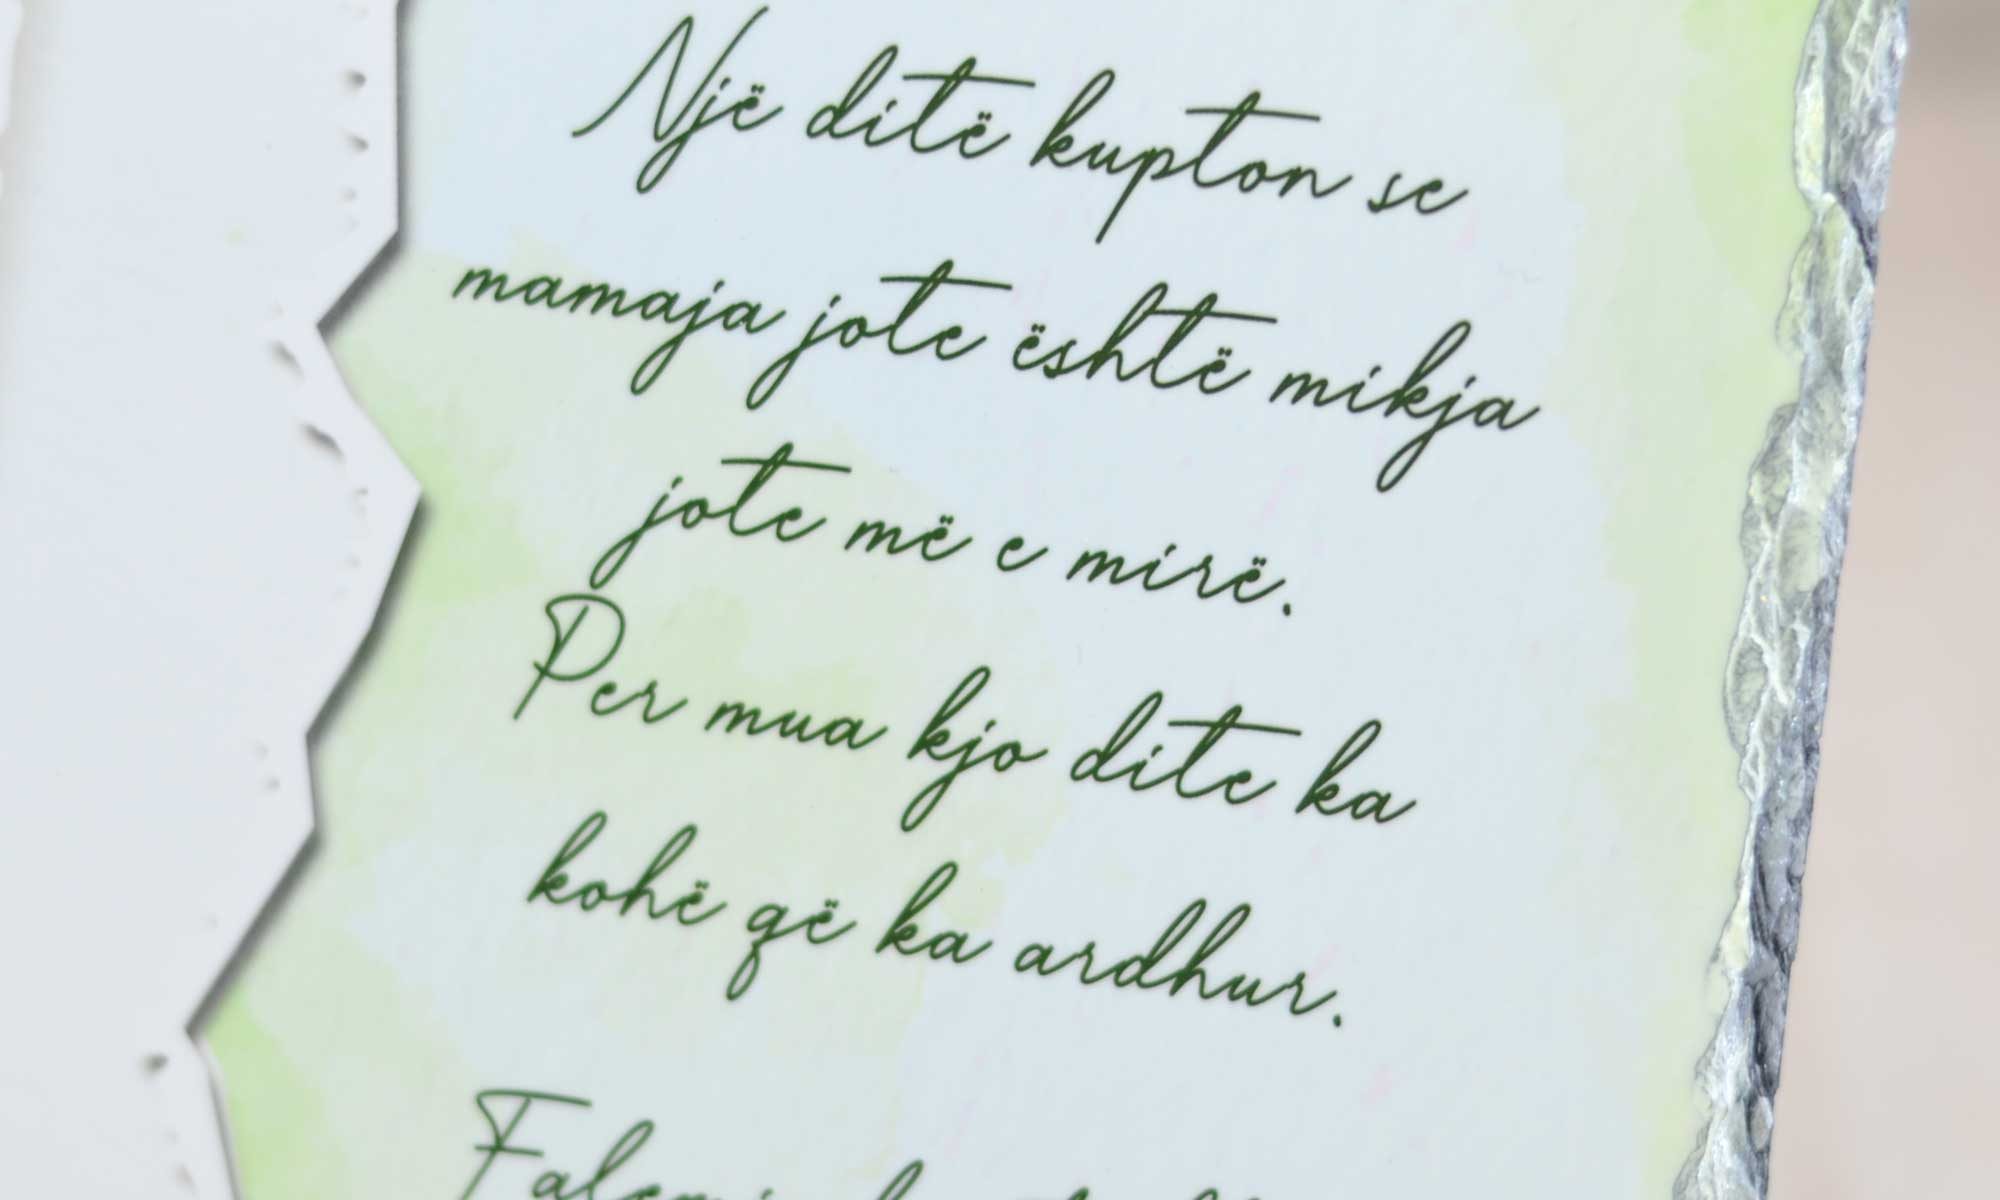 Një ditë kupton se
mamaja jote është mikja
jote më e mirë.
Per mua kjo dite ka
kohë që ka ardhur.